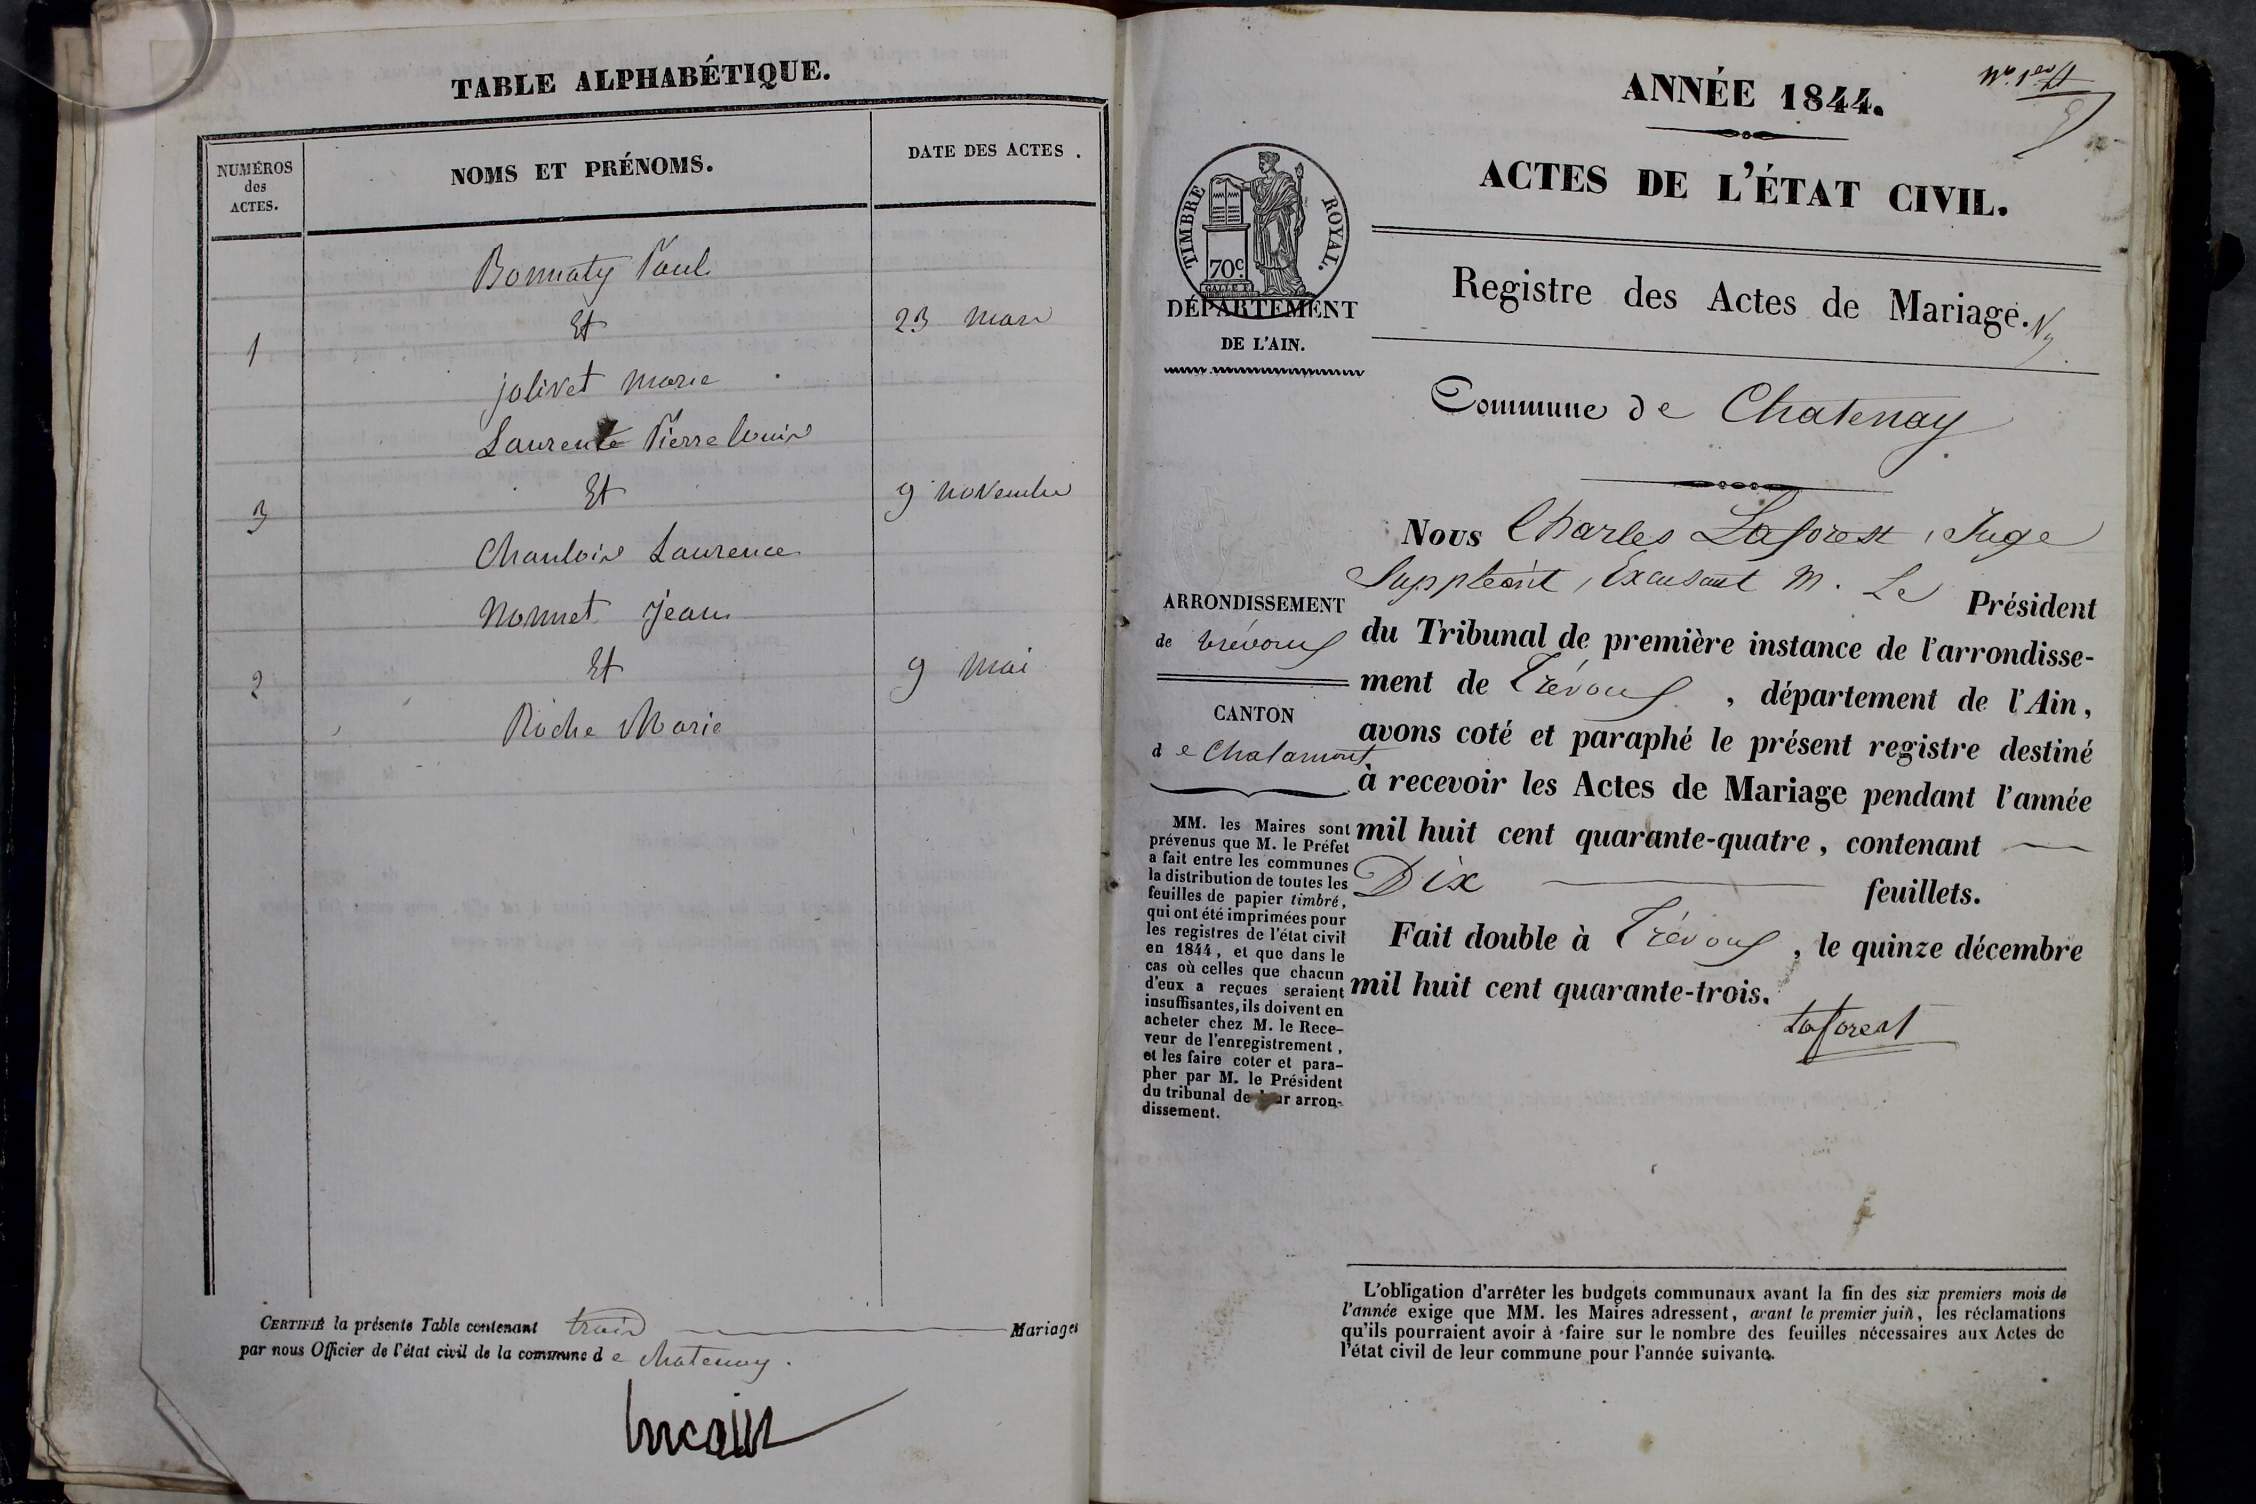 TABLE ALPHABÉTIQUE.
NUMÉROS
des
ACTES.
NOMS ET PRÉNOMS.
DATE DES ACTES.
Bonnaty Paul
1 Et 23 mars
jolivet marie
Laurent Pierre louis
3 Et 9 novembre
Chanloin Laurence
Nonnet Jean
2 Et 9 mai
Roche Marie
CERTIFIÉ la présente Table contenant trois Mariages
par nous Officier de l'état civil de la commune de chatenay.
ANNÉE 1844.
ACTES DE L'ÉTAT CIVIL.
TIMBRE ROYAL.
70c.
DÉPARTEMENT
DE L'AIN.
Registre des Actes de Mariage.
Commune de Chatenay
ARRONDISSEMENT
de trévoux
CANTON
de Chalamont
MM. les Maires sont
prévenus que M. le Préfet
a fait entre les communes
la distribution de toutes les
feuilles de papier timbré,
qui ont été imprimées pour
les registres de l'état civil
en 1844, et que dans le
cas où celles que chacun
d'eux a reçues seraient
insuffisantes, ils doivent en
acheter chez M. le Rece-
veur de l'enregistrement,
et les faire coter et para-
pher par M. le Président
du tribunal de leur arron-
dissement.
Nous Charles Laforest, Juge
Suppléant, Excusant M. Le Président
du Tribunal de première instance de l'arrondisse-
ment de Trévoux, département de l'Ain,
avons coté et paraphé le présent registre destiné
à recevoir les Actes de Mariage pendant l'année
mil huit cent quarante-quatre, contenant
Dix feuillets.
Fait double à Trévoux, le quinze décembre
mil huit cent quarante-trois.
Laforest
L'obligation d'arrêter les budgets communaux avant la fin des six premiers mois de
l'année exige que MM. les Maires adressent, avant le premier juin, les réclamations
qu'ils pourraient avoir à faire sur le nombre des feuilles nécessaires aux Actes de
l'état civil de leur commune pour l'année suivante.